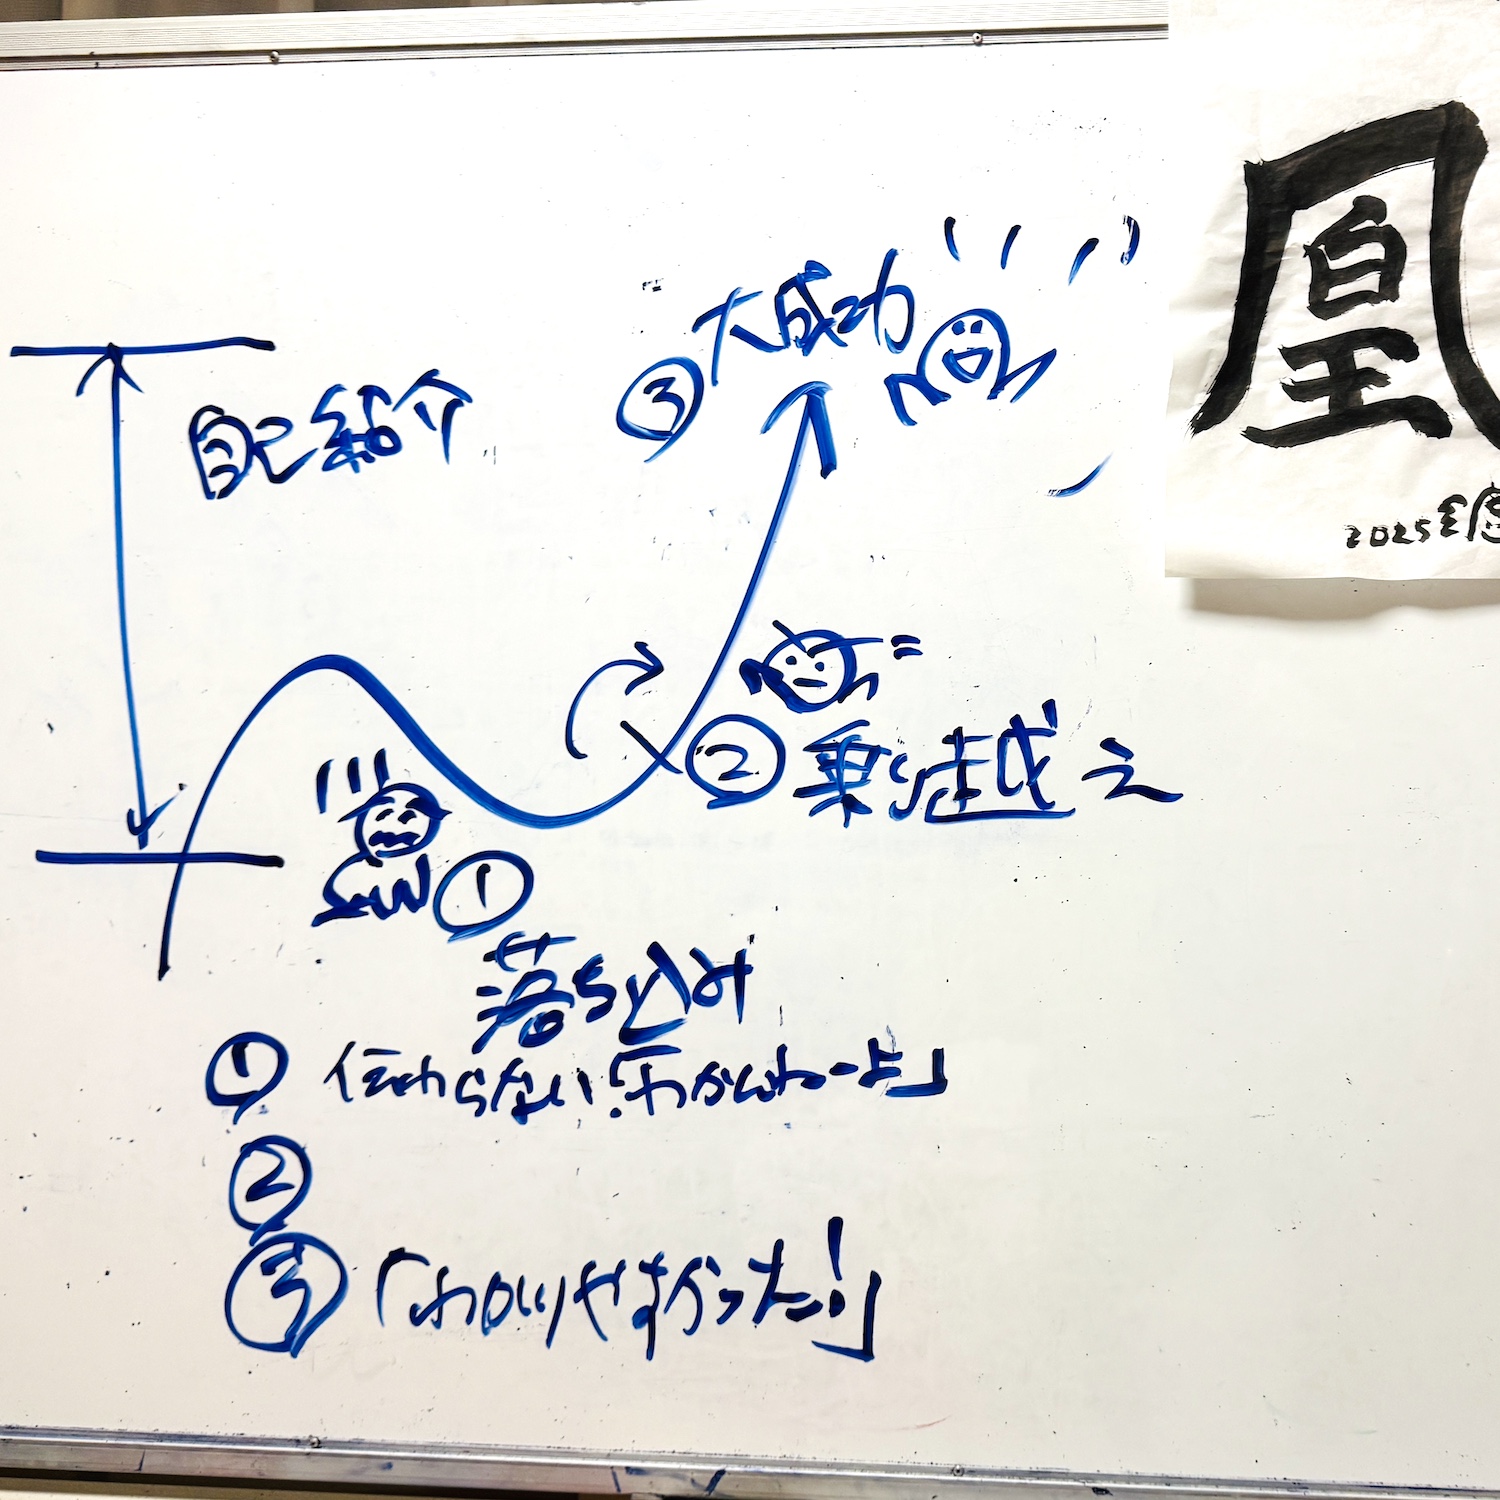 自己紹介
③大成功
②乗り越え
①
落ち込み
① 伝わらない「わかんねーよ」
②
③「わかりやすかった!」
凰
2025